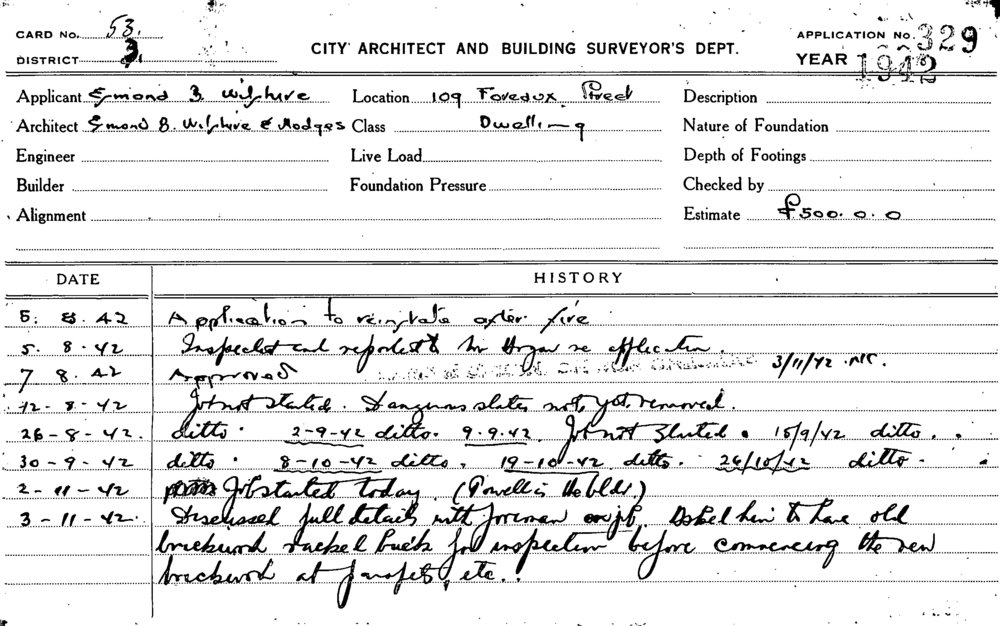 CARD No. 53.
DISTRICT 3.
CITY ARCHITECT AND BUILDING SURVEYOR'S DEPT.
APPLICATION No. 329
YEAR 1942
Applicant Esmond B. Wilshire Location 109 Foveaux Street Description
Architect Esmond B. Wilshire & Hodges Class Dwelling Nature of Foundation
Engineer Live Load Depth of Footings
Builder Foundation Pressure Checked by
Alignment Estimate £500.0.0
DATE HISTORY
5. 8. 42 Application to reinstate after fire
5. 8. 42 Inspected and reported to Mr Hogan re application
7 8. 42 Approved 3/11/42
12-8-42 Job not started. Dangerous slates not yet removed.
26-8-42. ditto. 2-9-42 ditto. 9.9.42. Job not started. 15/9/42 ditto.
30-9-42 ditto. 8-10-42 ditto. 19-10-42 ditto. 26/10/42 ditto.
2-11-42 Job started today. (Powell is the bldr.)
3-11-42. Discussed full details with foreman on job. Asked him to have old
brickwork racked back for inspection before commencing the new
brickwork at parapets, etc.